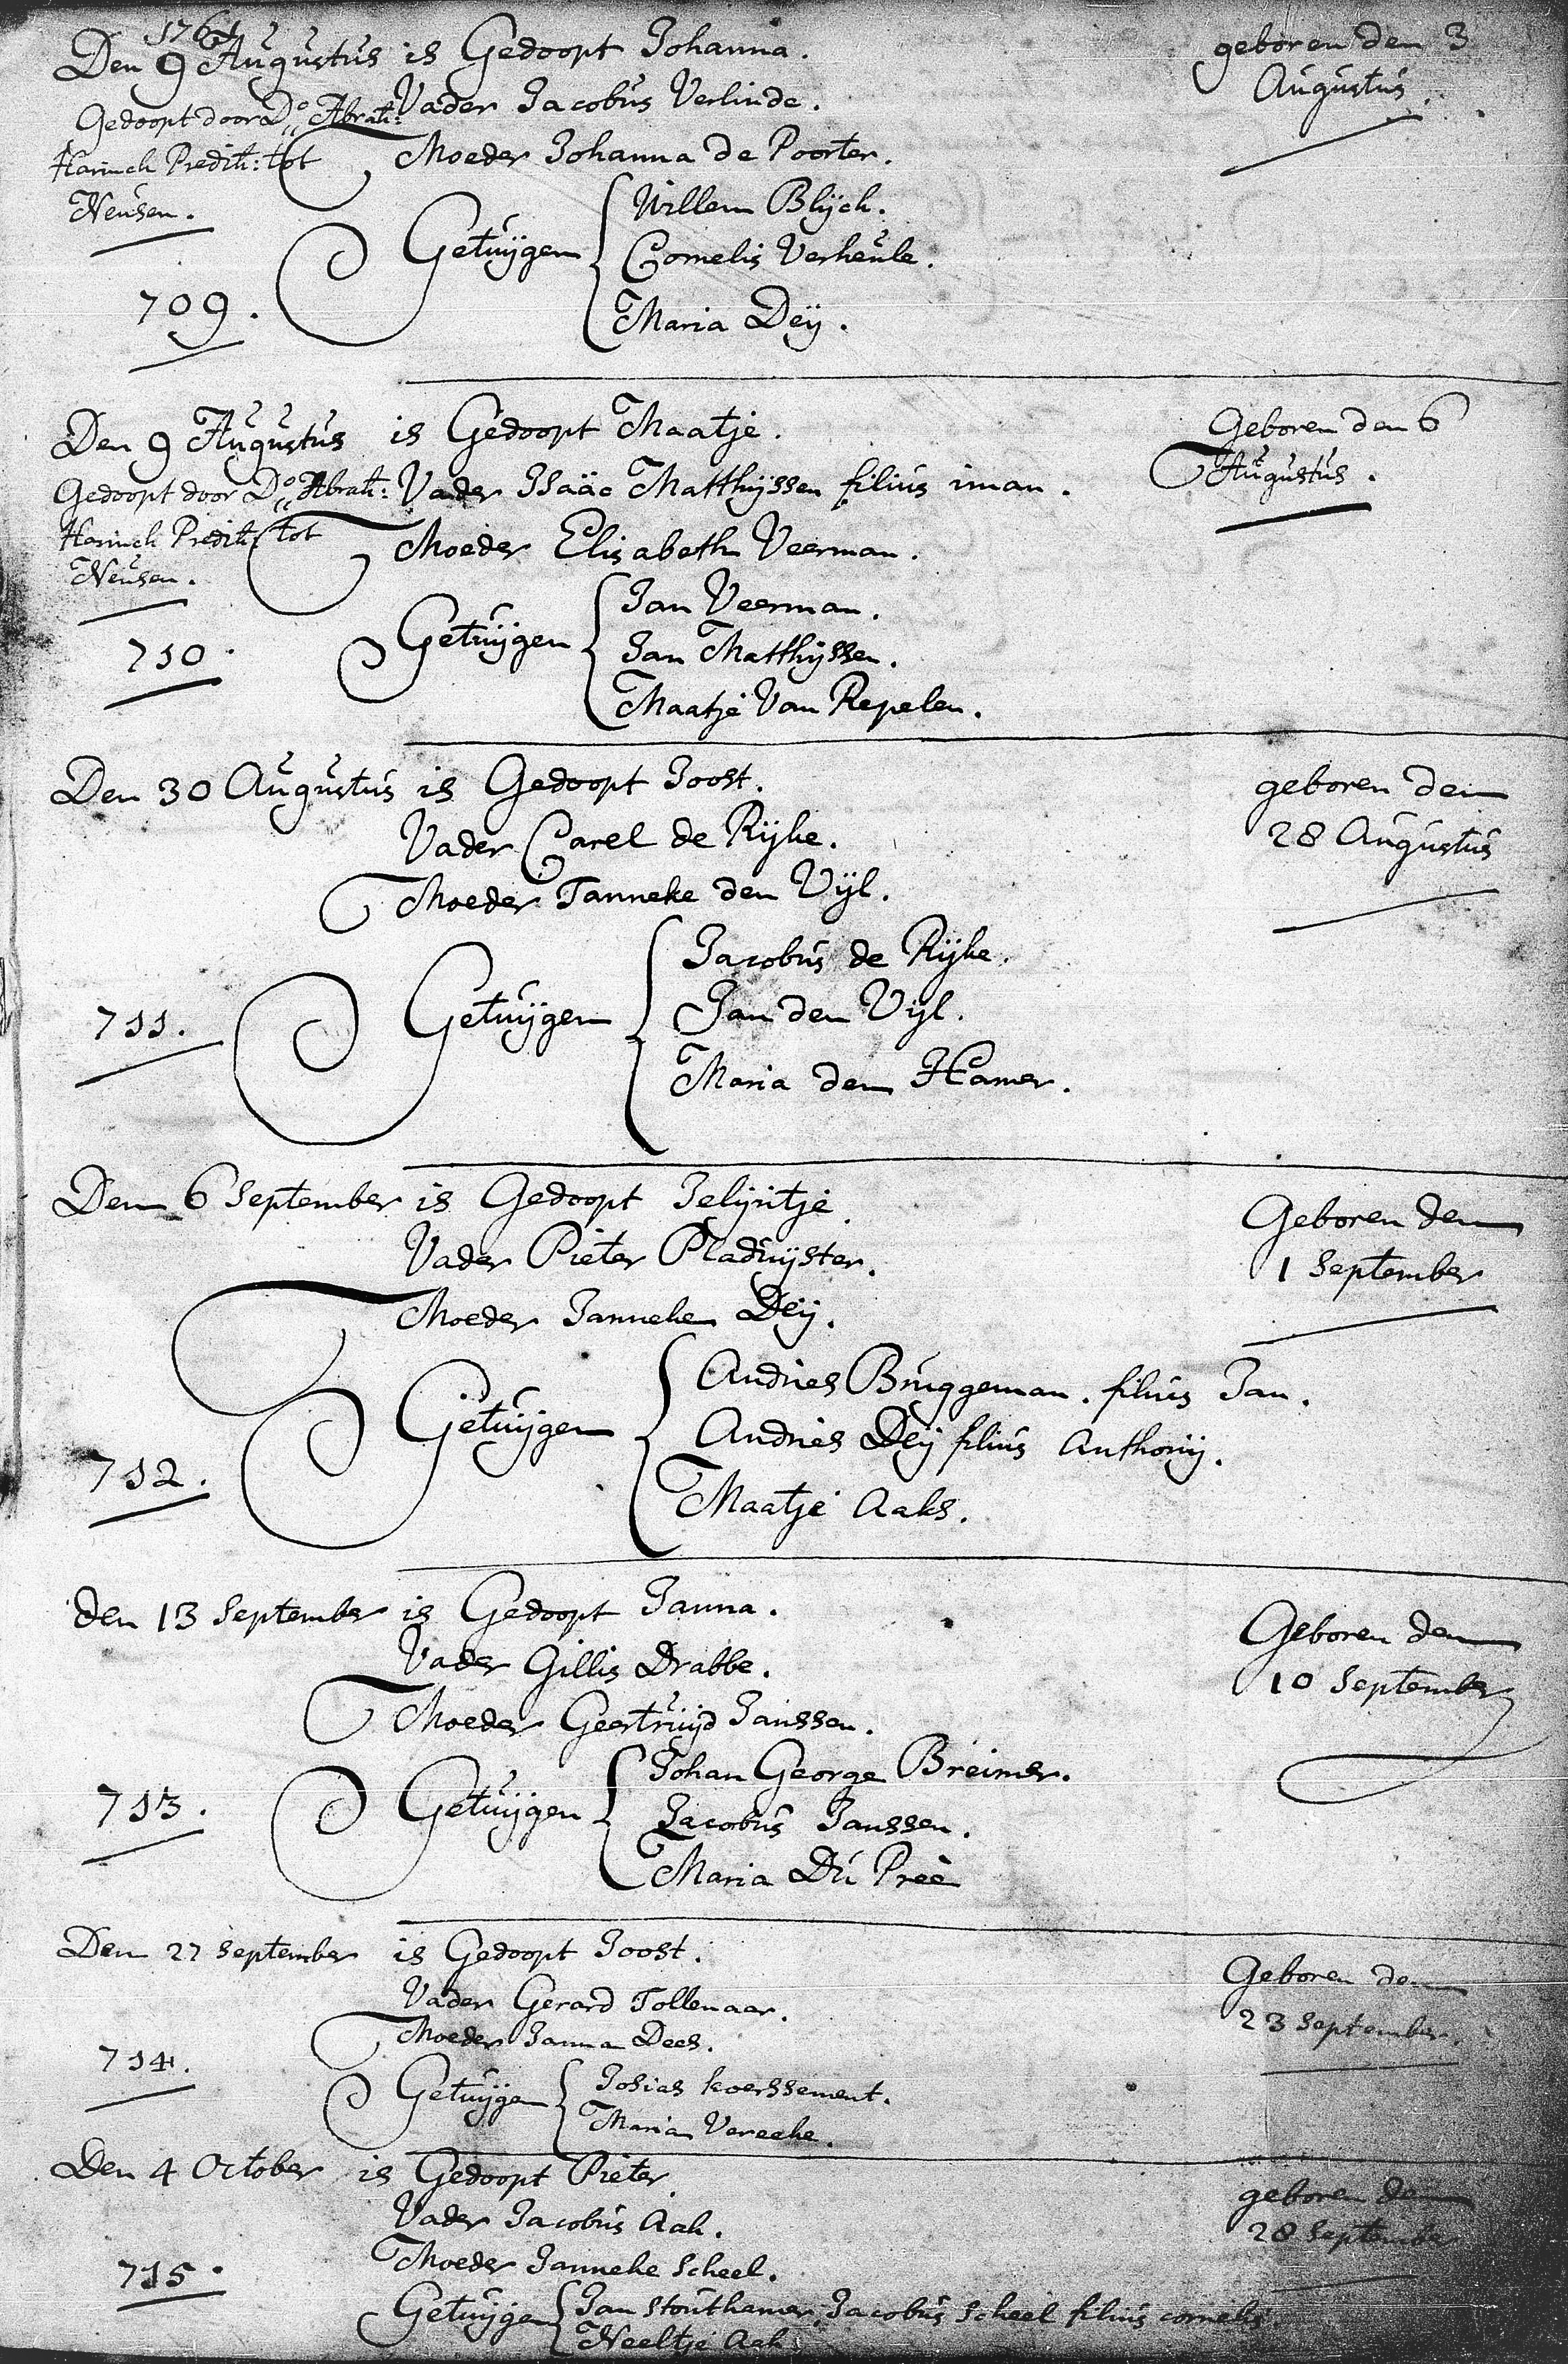 1761
Den 9 Augustus is Gedoopt Johanna. geboren den 3
Augustus.
Gedoopt door Do Abrah: Vader Jacobus Verlinde.
Harinck Predik: tot Moeder Johanna de Poorter.
Neusen.
Willem Blijck.
Getuijgen Cornelis Verheule.
709. Maria Deij.
Den 9 Augustus is Gedoopt Maatje. Geboren den 6
Augustus.
Gedoopt door Do Abrah: Vader Isääc Matthijssen filius iman.
Harinck Predik: tot Moeder Elisabeth Veerman.
Neusen.
Jan Veerman.
710. Getuijgen Jan Matthijssen.
Maatje Van Repelen.
Den 30 Augustus is Gedoopt Joost. geboren den
28 Augustus
Vader Carel de Rijke.
Moeder Tanneke den Vijl.
Jacobus de Rijke.
711. Getuijgen Jan den Vijl.
Maria den Hamer.
Den 6 September is Gedoopt Jelijntje. Geboren den
1 September
Vader Pieter Pladuijster.
Moeder Janneke Deij.
Andries Bruggeman. filius Jan.
Getuijgen Andries Deij filius Anthonij.
712. Maatje Aaks.
den 13 September is Gedoopt Janna. Geboren den
10 September
Vader Gillis Drabbe.
Moeder Geertruijd Janssen.
Johan George Breimer.
713. Getuijgen Jacobus Janssen.
Maria Du Preè
Den 27 September is Gedoopt Joost. Geboren den
23 September.
Vader Gerard Tollenaar.
Moeder Janna Dees.
714. Getuijgen Josias koerssement.
Maria Vereeke.
Den 4 October is Gedoopt Pieter. geboren den
28 September
Vader Jacobus Aak.
Moeder Janneke Scheel.
715. Getuijgen Jan Stouthamer, Jacobus Scheel filius cornelis.
Neeltje Aak